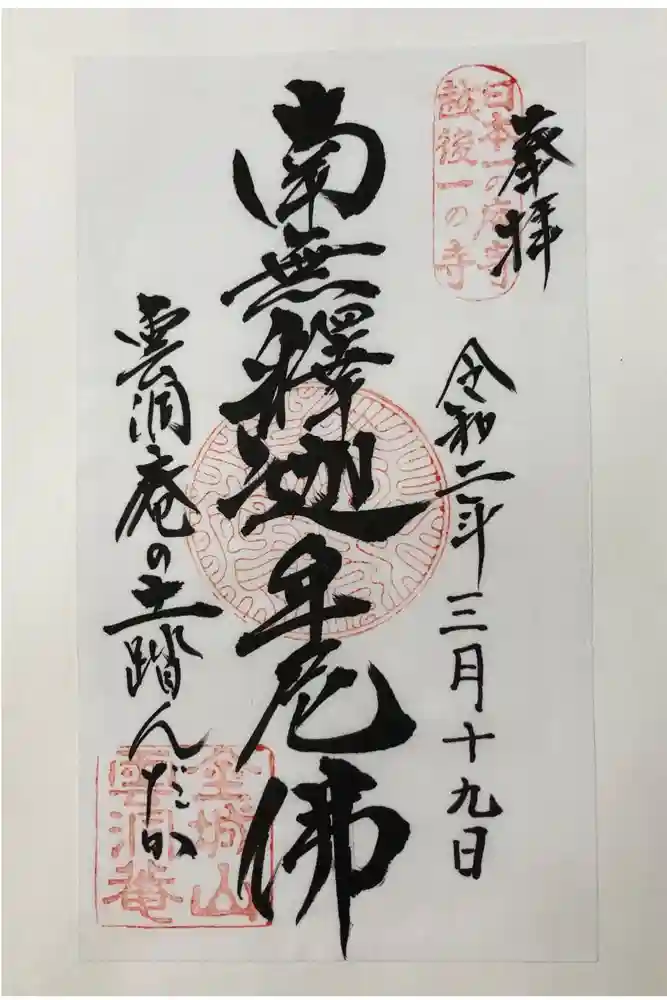 奉拝
日本一の庭寺
越後一の寺
令和二年三月十九日
南無釋迦牟尼佛
雲洞庵の土踏んだか
金城山
雲洞菴